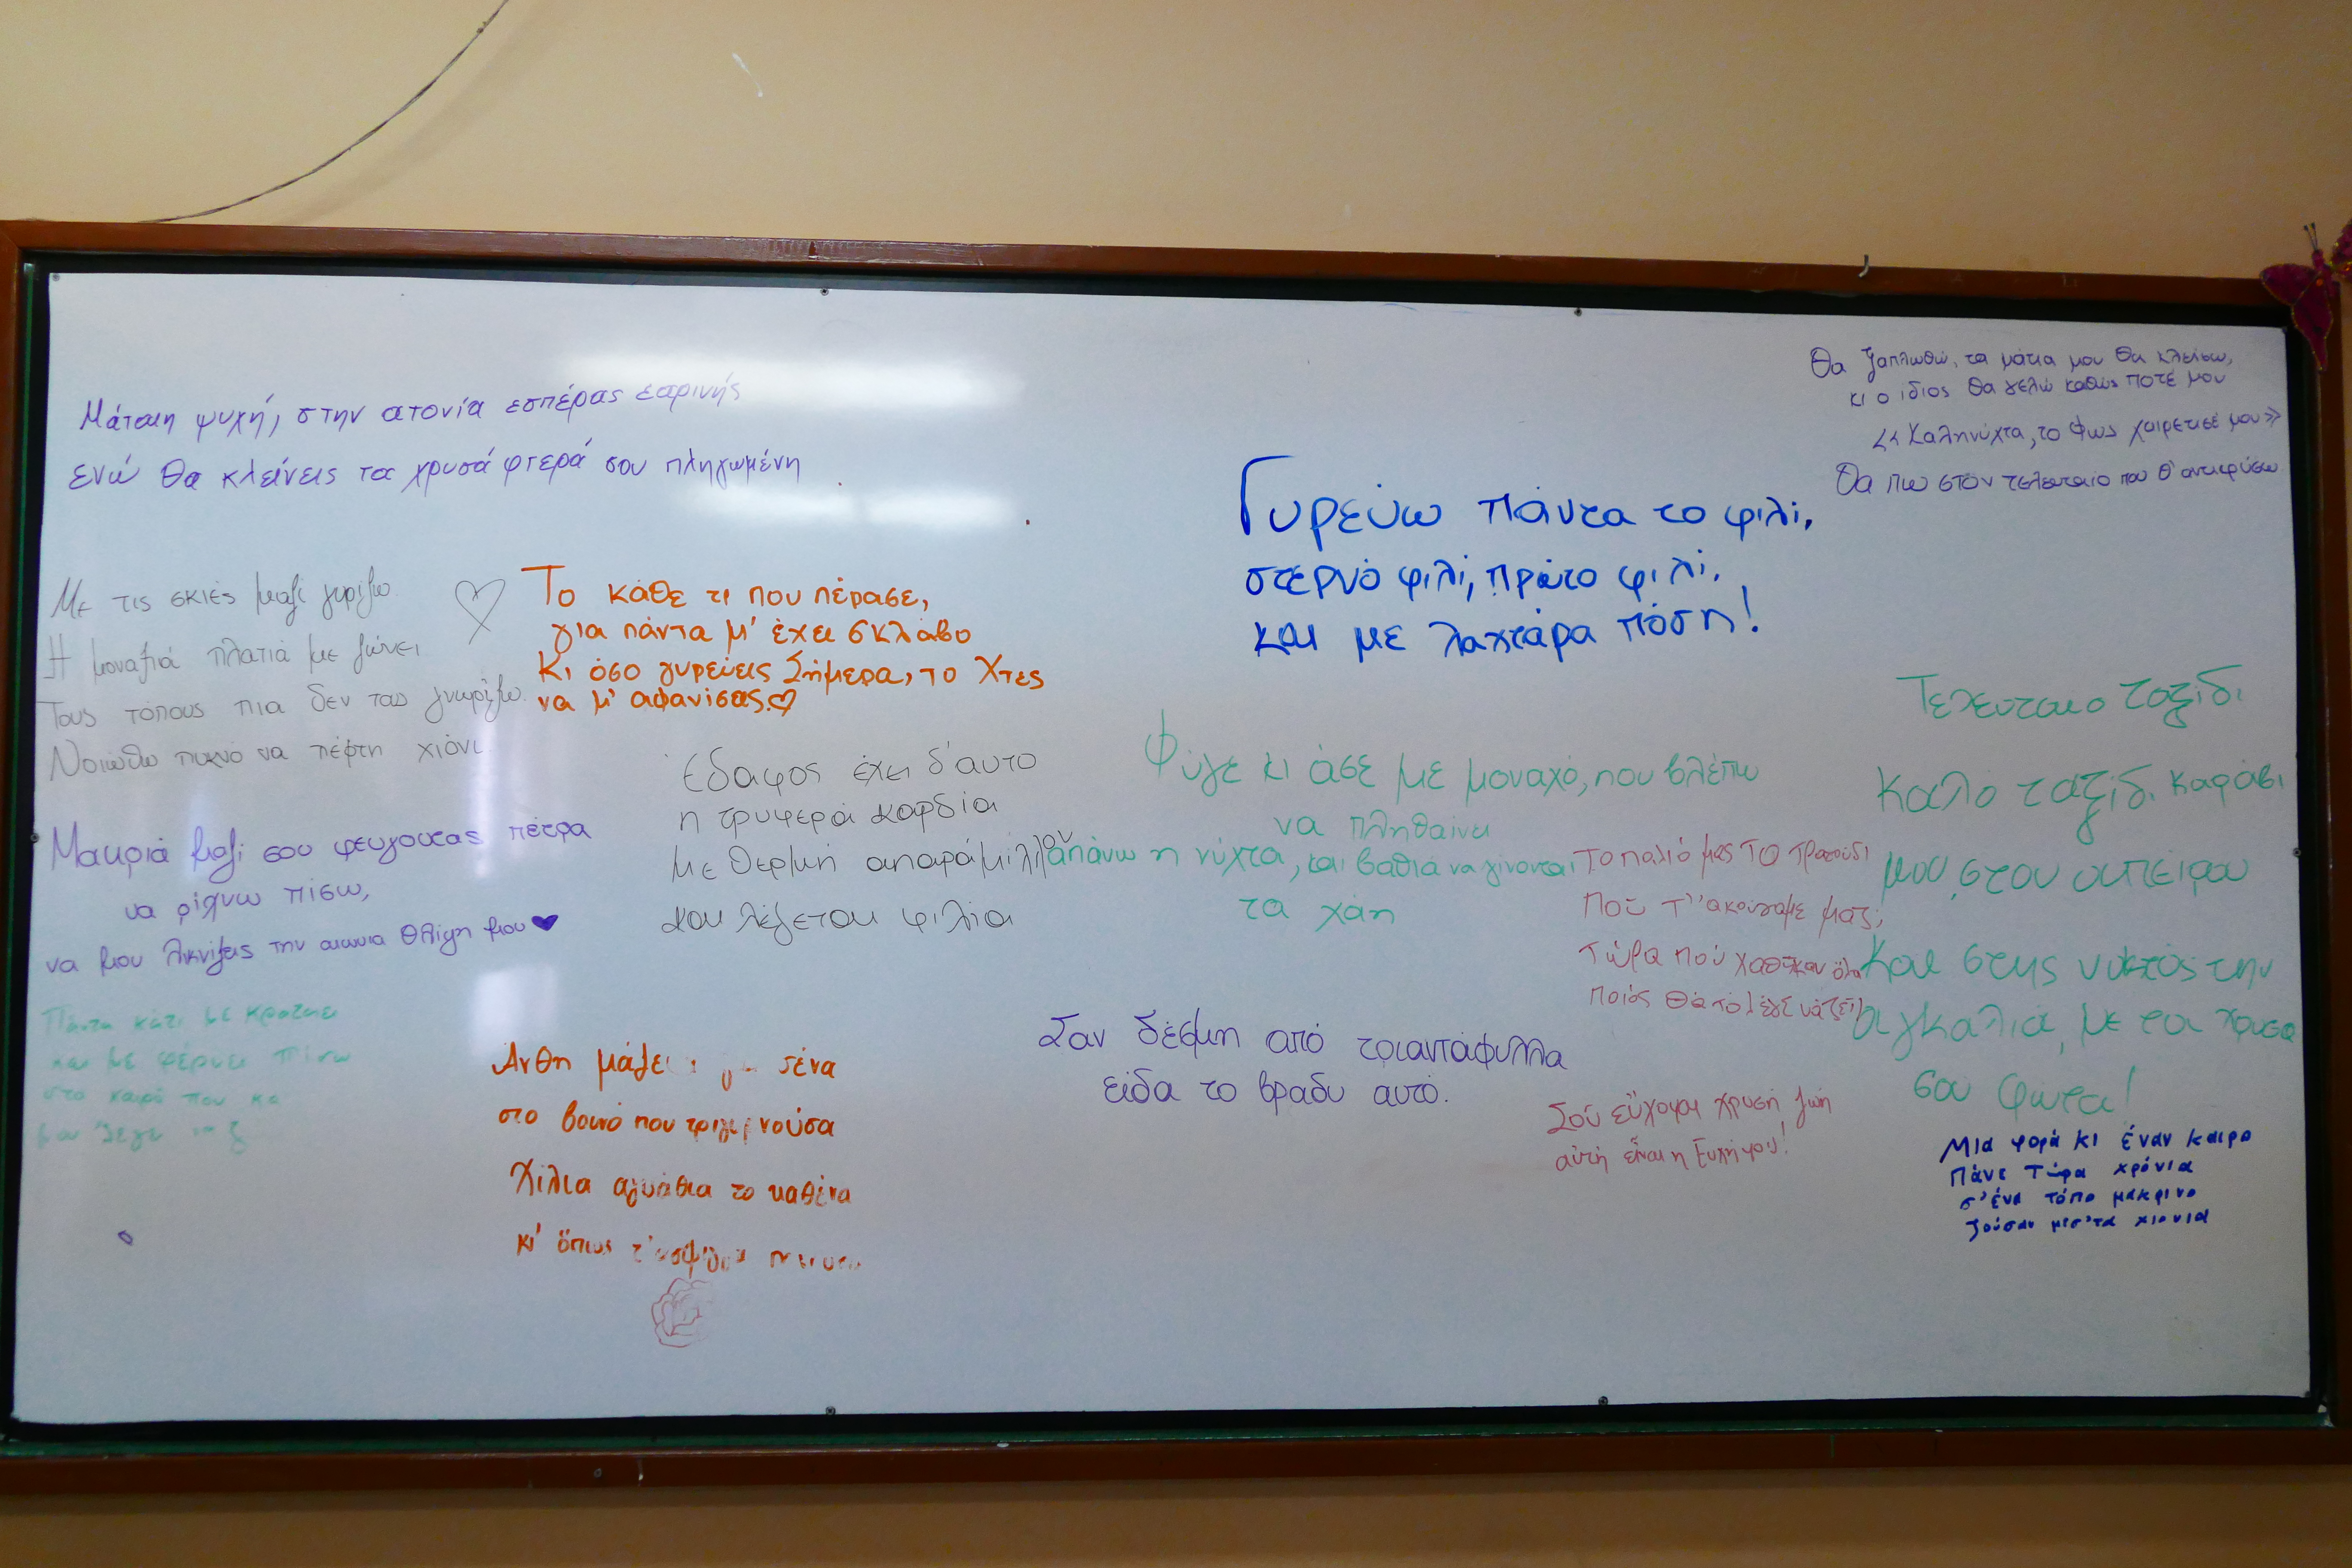 Μάταιη ψυχή, στην ατονία εσπέρας εαρινής
ενώ θα κλείνεις τα χρυσά φτερά σου πληγωμένη
Με τις σκιές μαζί γυρίζω.
Η μοναξιά πλατιά με ζώνει
Τους τόπους πια δεν τους γνωρίζω.
Νοιώθω πυκνό να πέφτη χιόνι.
Το κάθε τι που πέρασε,
για πάντα μ' έχει σκλάβο
Κι όσο γυρεύεις Σήμερα, το Χτες
να μ' αφανίσεις.
Μακριά μαζί σου φεύγοντας πέτρα
να ρίχνω πίσω,
να μου λικνίζεις την αιωνια θλίψη μου
Πάντα κάτι με κραταει
και με φέρνει πίσω
στο καιρό που
μου λεγε
Έδαφος έχει δ'αυτο
η τρυφερά καρδία
με θερμή απαράμιλλον
και λέγεται φιλία
Άνθη μάζε σένα
στο βουνό που τριγυρνούσα
Χίλια αγκάθια το καθένα
κι' όπως
Γυρεύω πάντα το φιλί,
στερνό φιλί, πρώτο φιλί,
και με λαχτάρα πόση!
Φύγε κι άσε με μοναχό, που βλέπω
να πληθαίνει
απάνω η νύχτα, και βαθιά να γίνονται
τα χάη
Σαν δέσμη από τριαντάφυλλα
είδα το βραδυ αυτό.
Θα ξαπλωθώ, τα μάτια μου θα κλείσω,
κι ο ίδιος θα γελώ καθώς ποτέ μου
<<Καληνύχτα, το φως χαιρέτισέ μου>>
Θα πω στον τελευταίο που θ' αντικρύσω
Τελευταιο ταξίδι
Καλό ταξίδι καράβι
μου, στου απείρου
και στης νυκτός την
αγκαλιά, με τα χρυσα
σου φωτα!
Το παλιό μας το τραγούδι
Που τ'' ακούγαμε μαζί,
Τώρα πού χαθηκαν όλα
ποιός θά τό λεγε νά ζεῖ;
Σοῦ εὔχομαι χρυσή ζωή
αὐτή εἶναι η Εὐχή μου!
Μια φορά κι έναν καιρο
Πάνε τώρα χρόνια
σ'ένα τόπο μακρινο
ζούσαν μεσ'τα χιονια